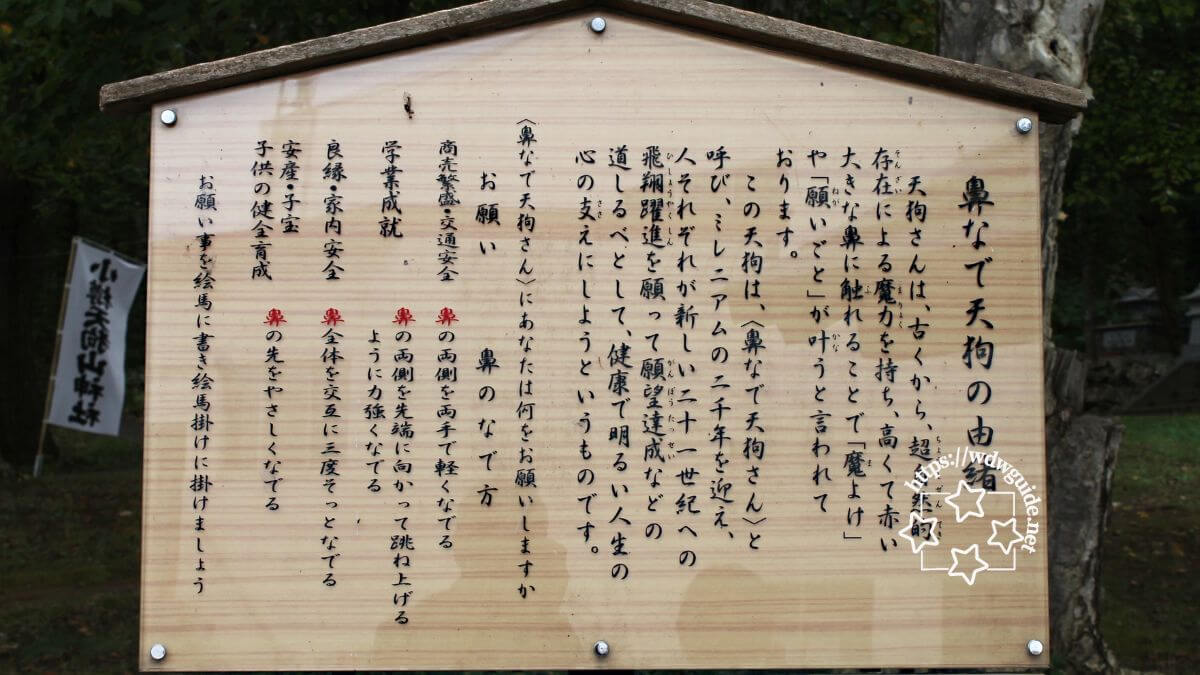 鼻なで天狗の由緒
天狗さんは、古くから、超自然的
存在による魔力を持ち、高くて赤い
大きな鼻に触れることで「魔よけ」
や「願いごと」が叶うと言われて
おります。
この天狗は、〈鼻なで天狗さん〉と
呼び、ミレニアムの二千年を迎え、
人それぞれが新しい二十一世紀への
飛翔躍進を願って願望達成などの
道しるべとして、健康で明るい人生の
心の支えにしようというものです。
〈鼻なで天狗さん〉にあなたは何をお願いしますか
お願い 鼻のなで方
商売繁盛・交通安全 鼻の両側を両手で軽くなでる
学業成就 鼻の両側を先端に向かって跳ね上げる
ように力強くなでる
良縁・家内安全 鼻全体を交互に三度そっとなでる
安産・子宝
子供の健全育成 鼻の先をやさしくなでる
お願い事を絵馬に書き絵馬掛けに掛けましょう
小樽天狗山神社
https://wdwguide.net